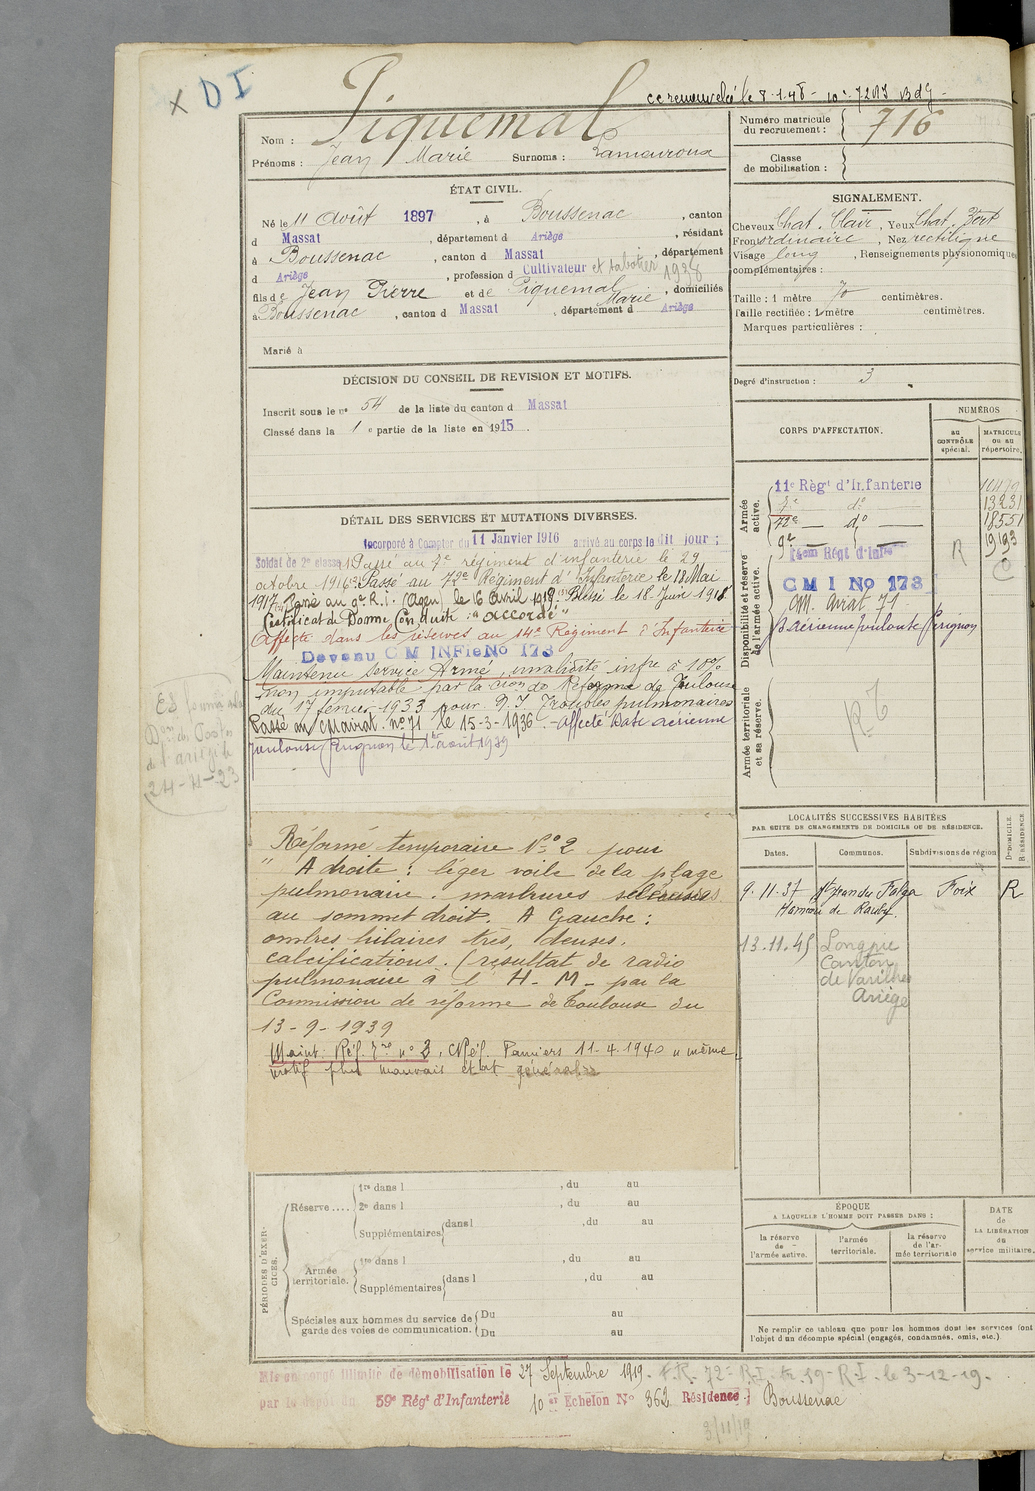 x DI
cc renouvelé le 8-1-48 - n° 7203 BdJ -
Nom : Piquemal
Prénoms : Jean Marie Surnoms : Lamouroux
ÉTAT CIVIL.
Né le 11 Août 1897, à Boussenac, canton
d Massat, département d Ariège, résidant
à Boussenac, canton d Massat, département
d Ariège, profession d Cultivateur et sabotier 1938
fils de Jean Pierre et de Piquemal Marie, domiciliés
à Boussenac, canton d Massat, département d Ariège
Marié à
DÉCISION DU CONSEIL DE REVISION ET MOTIFS.
Inscrit sous le n° 54 de la liste du canton d Massat
Classé dans la 1 e partie de la liste en 1915.
DÉTAIL DES SERVICES ET MUTATIONS DIVERSES.
Incorporé à Compter du 11 Janvier 1916 arrivé au corps le dit jour ;
Soldat de 2e classe. Passé au 7e régiment d'infanterie le 29
octobre 1916. Passé au 72e Régiment d'Infanterie le 18 Mai
1917. Passé au 9e R.I. (Agen) le 16 Avril 1919. Blessé le 18 Juin 1918.
Certificat de Bonne Conduite : "accordé"
Affecté dans les réserves au 14e Régiment d'Infanterie
Devenu C M INFie No 173
Maintenu service Armé, invalidité infre à 10%
non imputable par la Cion de Réforme de Toulouse
du 17 février 1933 pour P.I Troubles pulmonaires
Passé au CM airat. n° 71 le 15-3-1936. - affecté Base aérienne
Toulouse Perignon le 1er août 1939
24-4-23
Réformé temporaire N° 2 pour
" A droite : léger voile de la plage
pulmonaire. marbrures scléreuses
au sommet droit. A Gauche :
ombres hilaires très, denses.
calcifications. (résultat de radio
pulmonaire à l' H-M- par la
Commission de reforme de Toulouse du
13-9-1939
Maint. Réf. Tre n° 2. CRéf. Pamiers 11-4-1940 "même
motif plus mauvais état général"
PÉRIODES D'EXERCICES.
Réserve....
1re dans l , du au
2e dans l , du au
Supplémentaires dans l , du au
Armée territoriale.
1re dans l , du au
Supplémentaires dans l , du au
Spéciales aux hommes du service de garde des voies de communication.
Du au
Du au
Mis en congé illimité de démobilisation le 27 Septembre 1919.
par le dépôt du 59e Régt d'Infanterie 10 er Echelon N° 362 Résidence } Boussenac
F.R. 72e R.I. tr. 59e R.I. le 3-12-19.
3/11/19
Numéro matricule du recrutement : 716
Classe de mobilisation :
SIGNALEMENT.
Cheveux Chat. Clair, Yeux Chat. Vert
Front ordinaire, Nez rectiligne
Visage long, Renseignements physionomiques
complémentaires :
Taille : 1 mètre 70 centimètres.
Taille rectifiée : 1 mètre centimètres.
Marques particulières :
Degré d'instruction : 3
CORPS D'AFFECTATION.
NUMÉROS
au CONTRÔLE spécial.
MATRICULE ou au répertoire.
Armée active.
11e Régt d'Infanterie
7e do 13231
72e do 18551
9e
Disponibilité et réserve de l'armée active.
14eme Régt d'Infie R
C M I No 173
CM. Airat 71
B Aérienne Toulouse Perignon
Armée territoriale et sa réserve.
LOCALITÉS SUCCESSIVES HABITÉES
PAR SUITE DE CHANGEMENTS DE DOMICILE OU DE RÉSIDENCE.
Dates. Communes. Subdivisions de région D=DOMICILE. R=RÉSIDENCE
9-11-37 St Jean du Falga Foix R
Hameau de Rauly
13.11.45 Longpré
Canton
de Varilhes
Ariège
ÉPOQUE
A LAQUELLE L'HOMME DOIT PASSER DANS :
la réserve de l'armée active.
l'armée territoriale.
la réserve de l'armée territoriale
DATE de LA LIBÉRATION du service militaire.
Ne remplir ce tableau que pour les hommes dont les services font
l'objet d'un décompte spécial (engagés, condamnés, omis, etc.).